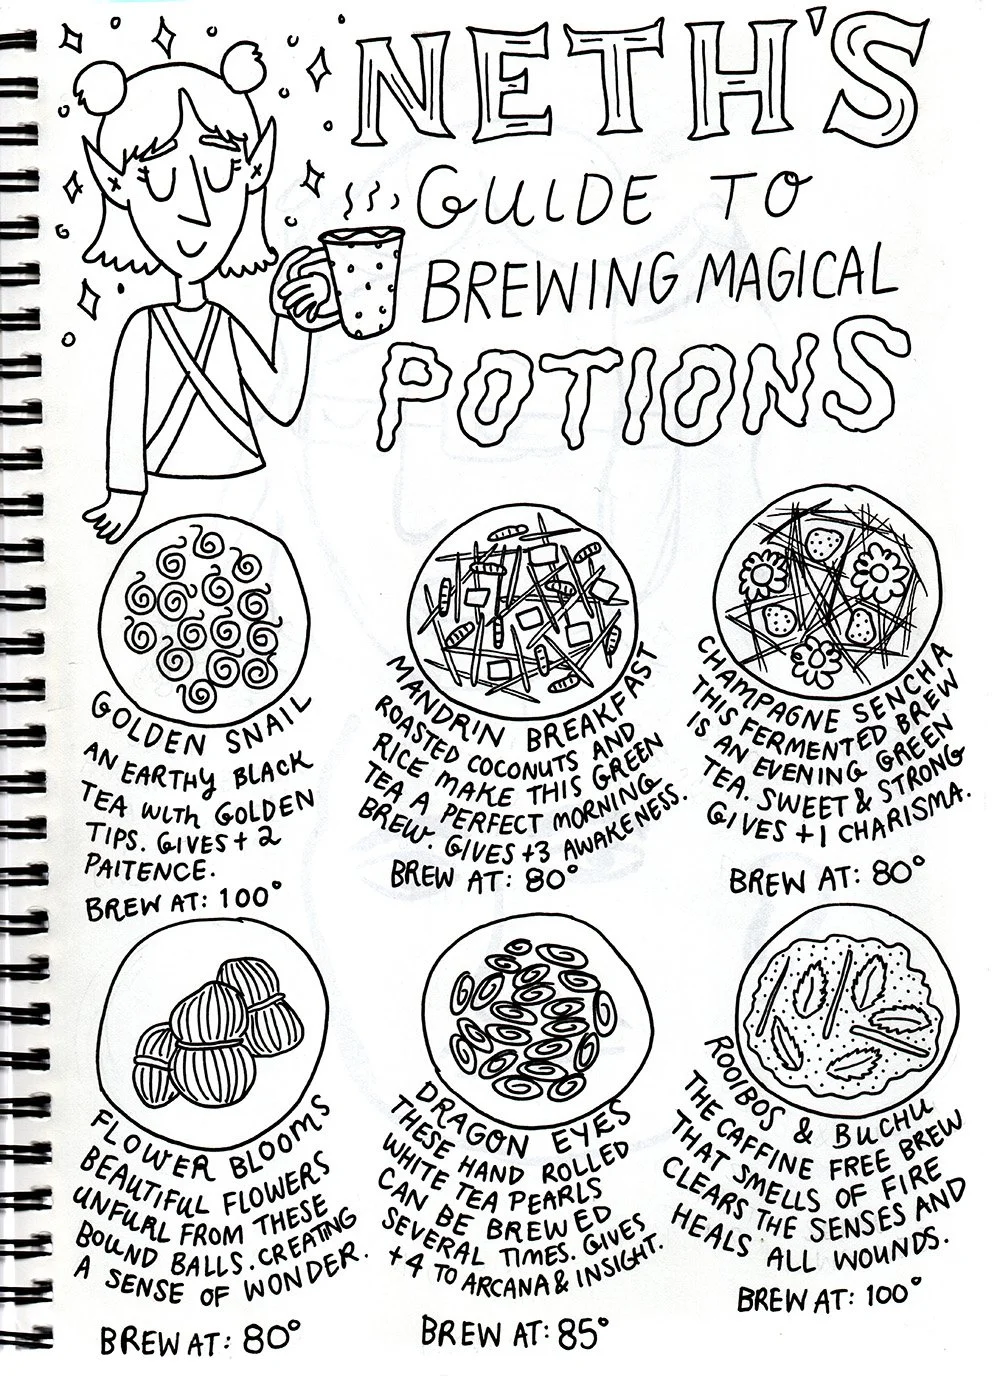 NETH'S
GUIDE TO
BREWING MAGICAL
POTIONS
GOLDEN SNAIL
AN EARTHY BLACK
TEA WITH GOLDEN
TIPS. GIVES + 2
PAITENCE.
BREW AT: 100°
MANDRIN BREAKFAST
ROASTED COCONUTS AND
RICE MAKE THIS GREEN
TEA A PERFECT MORNING
BREW. GIVES +3 AWAKENESS.
BREW AT: 80°
CHAMPAGNE SENCHA
THIS FERMENTED BREW
IS AN EVENING GREEN
TEA. SWEET & STRONG
GIVES +1 CHARISMA.
BREW AT: 80°
FLOWER BLOOMS
BEAUTIFUL FLOWERS
UNFURL FROM THESE
BOUND BALLS. CREATING
A SENSE OF WONDER.
BREW AT: 80°
DRAGON EYES
THESE HAND ROLLED
WHITE TEA PEARLS
CAN BE BREWED
SEVERAL TIMES. GIVES
+4 TO ARCANA & INSIGHT.
BREW AT: 85°
ROOIBOS & BUCHU
THE CAFFINE FREE BREW
THAT SMELLS OF FIRE
CLEARS THE SENSES AND
HEALS ALL WOUNDS.
BREW AT: 100°